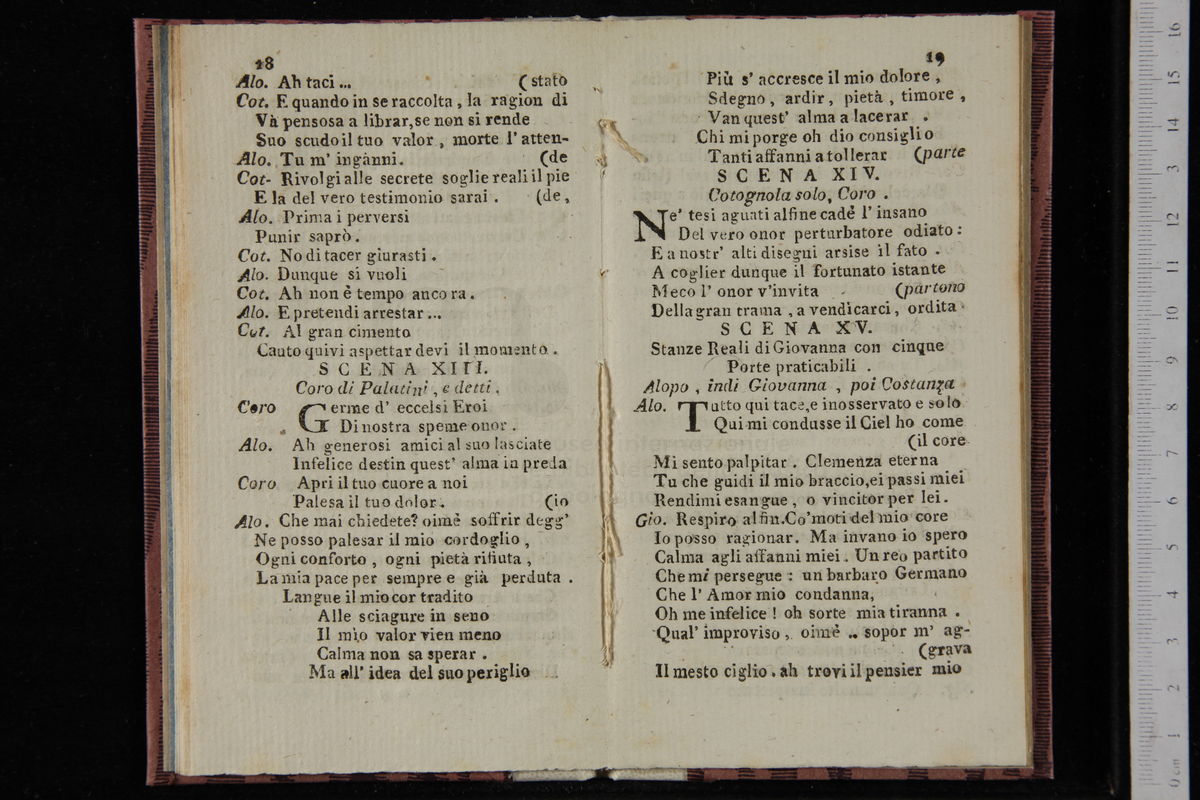 18
Alo. Ah taci ... (stato
Cot. E quando in se raccolta, la ragion di
Và pensosa a librar, se non si rende
Suo scudo il tuo valor, morte l' atten-
Alo. Tu m' inganni. (de
Cot- Rivolgi alle secrete soglie reali il pie
E la del vero testimonio sarai. (de,
Alo. Prima i perversi
Punir saprò.
Cot. No di tacer giurasti.
Alo. Dunque si vuoli
Cot. Ah non è tempo ancora.
Alo. E pretendi arrestar ...
Cot. Al gran cimento
Cauto quivi aspettar devi il momento.
SCENA XIII.
Coro di Palatini, e detti.
Coro Germe d' eccelsi Eroi
Di nostra speme onor.
Alo. Ah generosi amici al suo lasciate
Infelice destin quest' alma in preda
Coro Apri il tuo cuore a noi
Palesa il tuo dolor. (io
Alo. Che mai chiedete? oimè soffrir degg'
Ne posso palesar il mio cordoglio,
Ogni conforto, ogni pietà rifiuta,
La mia pace per sempre e già perduta.
Langue il mio cor tradito
Alle sciagure in seno
Il mio valor vien meno
Calma non sa sperar.
Ma all' idea del suo periglio
19
Più s' accresce il mio dolore,
Sdegno, ardir, pietà, timore,
Van quest' alma a lacerar.
Chi mi porge oh dio consiglio
Tanti affanni a tollerar (parte
SCENA XIV.
Cotognola solo, Coro.
Ne' tesi aguati alfine cadè l' insano
Del vero onor perturbatore odiato:
E a nostr' alti disegni arsise il fato.
A coglier dunque il fortunato istante
Meco l' onor v'invita (partono
Della gran trama, a vendicarci, ordita
SCENA XV.
Stanze Reali di Giovanna con cinque
Porte praticabili.
Alopo, indi Giovanna, poi Costanza
Alo. Tutto qui tace, e inosservato e solo
Qui mi condusse il Ciel ho come
(il core
Mi sento palpitar. Clemenza eterna
Tu che guidi il mio braccio, ei passi miei
Rendimi esangue, o vincitor per lei.
Gio. Respiro alfin. Co'moti del mio core
Io posso ragionar. Ma invano io spero
Calma agli affanni miei. Un reo partito
Che mi persegue: un barbaro Germano
Che l' Amor mio condanna,
Oh me infelice! oh sorte mia tiranna.
Qual' improviso, oimè .. sopor m' ag-
(grava
Il mesto ciglio. ah trovi il pensier mio
0 cm 1 2 3 4 5 6 7 8 9 10 11 12 13 14 15 16